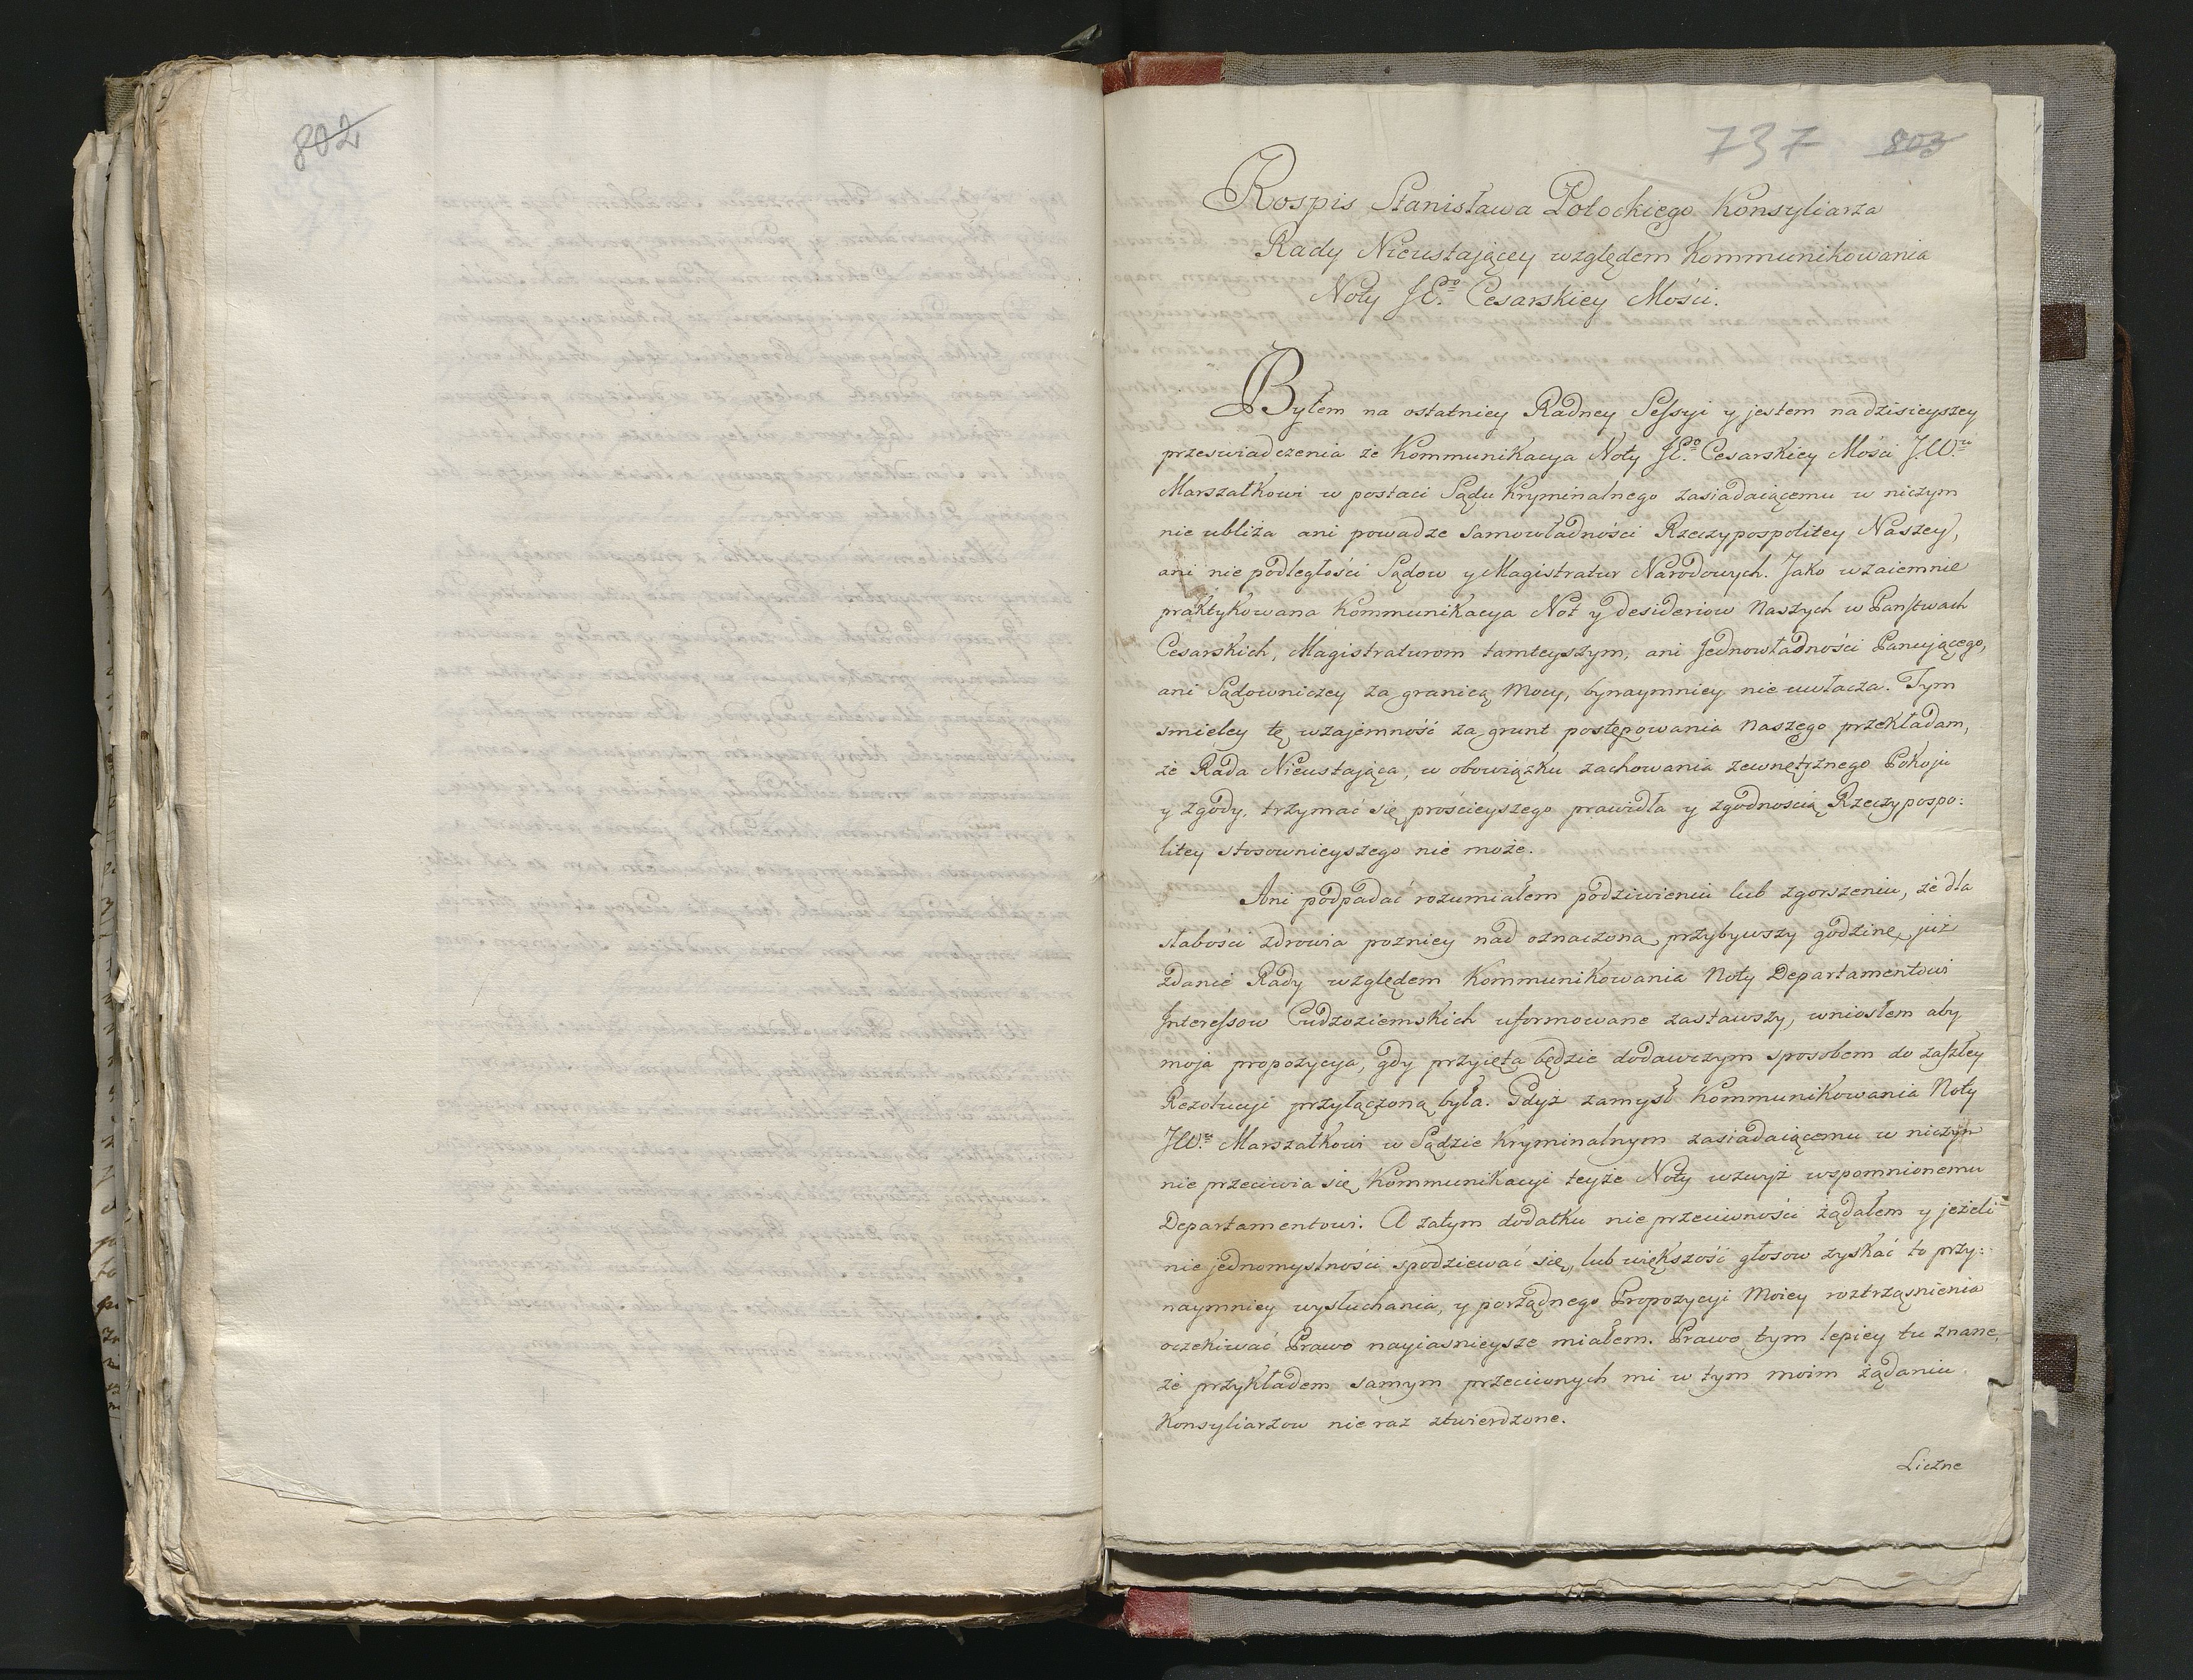 802
737 803
Rospis Stanisława Potockiego Konsyliarza
Rady Nieustaiącey względem Kommunikowania
Noty JE.go Cesarskiey Mości.
Byłem na ostatniey Radney Sessyi y jestem na dzisieyszey
przeswiadczenia że Kommunikacya Noty JE.go Cesarskiey Mości J.W.wi
Marszałkowi w postaci Sądu Kryminalnego zasiadaiącemu w niczym
nie ubliża ani powadze Samowładności Rzeczypospolitey Naszey,
ani nie podległości Sądow y Magistratur Narodowych. Jako wzaiemnie
praktykowana Kommunikacya Not y desideriow Naszych w Panstwach
Cesarskich, Magistraturom tamteyszym, ani Jednowładności Panującego,
ani Sądowniczey za granicą Mocy, bynaymniey nie uwłacza. Tym
smieley tę wzajemność za grunt postępowania Naszego przekładam,
że Rada Nieustająca, w obowiązku zachowania zewnętrznego Pokoju
y zgody, trzymać się prościeyszego prawidła y zgodnością Rzeczypospo:
litey stosownieyszego nie może.
Ani podpadać rozumiałem podziwieniu lub zgorszeniu, że dla
słabości zdrowia pozniey nad oznaczoną przybywszy godzinę, już
zdanie Rady względem Kommunikowania Noty Departamentowi
Interessow Cudzoziemskich uformowane zastawszy, wniosłem aby
moja propozycya, gdy przyięta będzie dodawczym sposobem do zaszłey
Rezolucyi przyłączoną była. Gdyż zamysł Kommunikowania Noty
JW.mu Marszałkowi w Sądzie Kryminalnym zasiadaiącemu w niczym
nie przeciwia się Kommunikacyi teyże Noty wzwyż wspomnionemu
Departamentowi. A zatym dodatku nie przeciwności żądałem y jeżeli
nie jednomyslności spodziewać się, lub większość głosow zyskać to przy:
naymniey wysłuchania, y porządnego Propozycyi Moiey roztrząsnienia
oczekiwać Prawo nayiasnieysze miałem. Prawo tym lepiey tu znane,
że przykładem samym przeciwnych mi w tym moim żądaniu
Konsyliarzow nie raz ztwierdzone.
Liczne